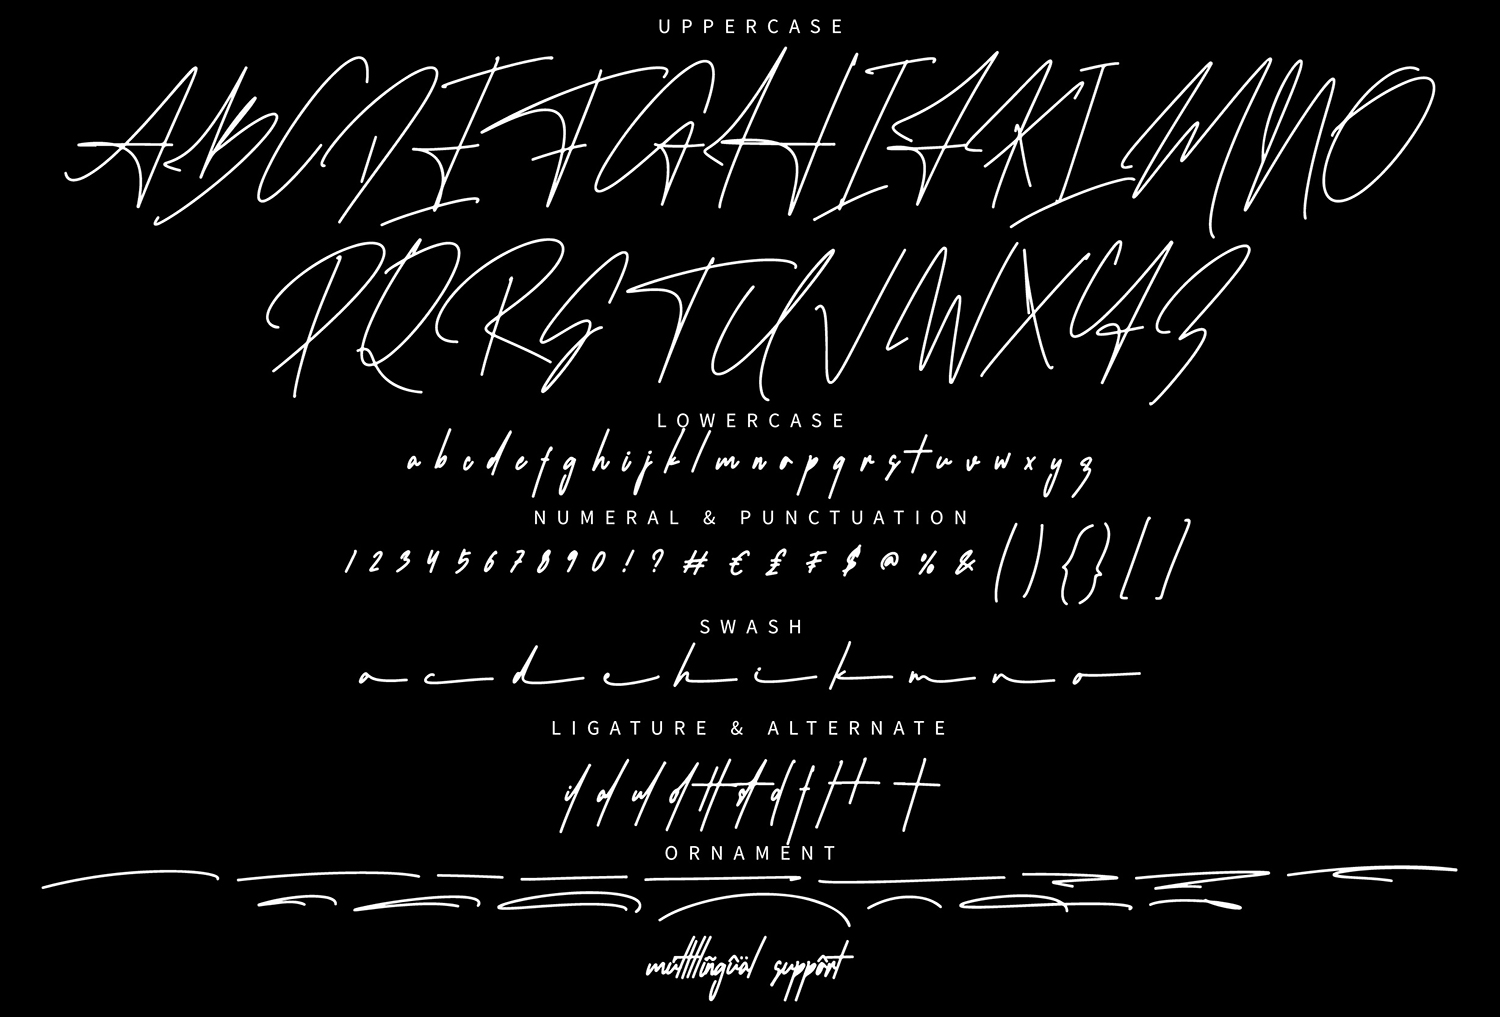 UPPERCASE
A B C D E F G H I J K L M N O
P Q R S T U V W X Y Z
LOWERCASE
a b c d e f g h i j k l m n o p q r s t u v w x y z
NUMERAL & PUNCTUATION
1 2 3 4 5 6 7 8 9 0 ! ? # € £ ₣ $ @ % & ( ) { } [ ]
SWASH
a c d e h i k m n o
LIGATURE & ALTERNATE
ORNAMENT